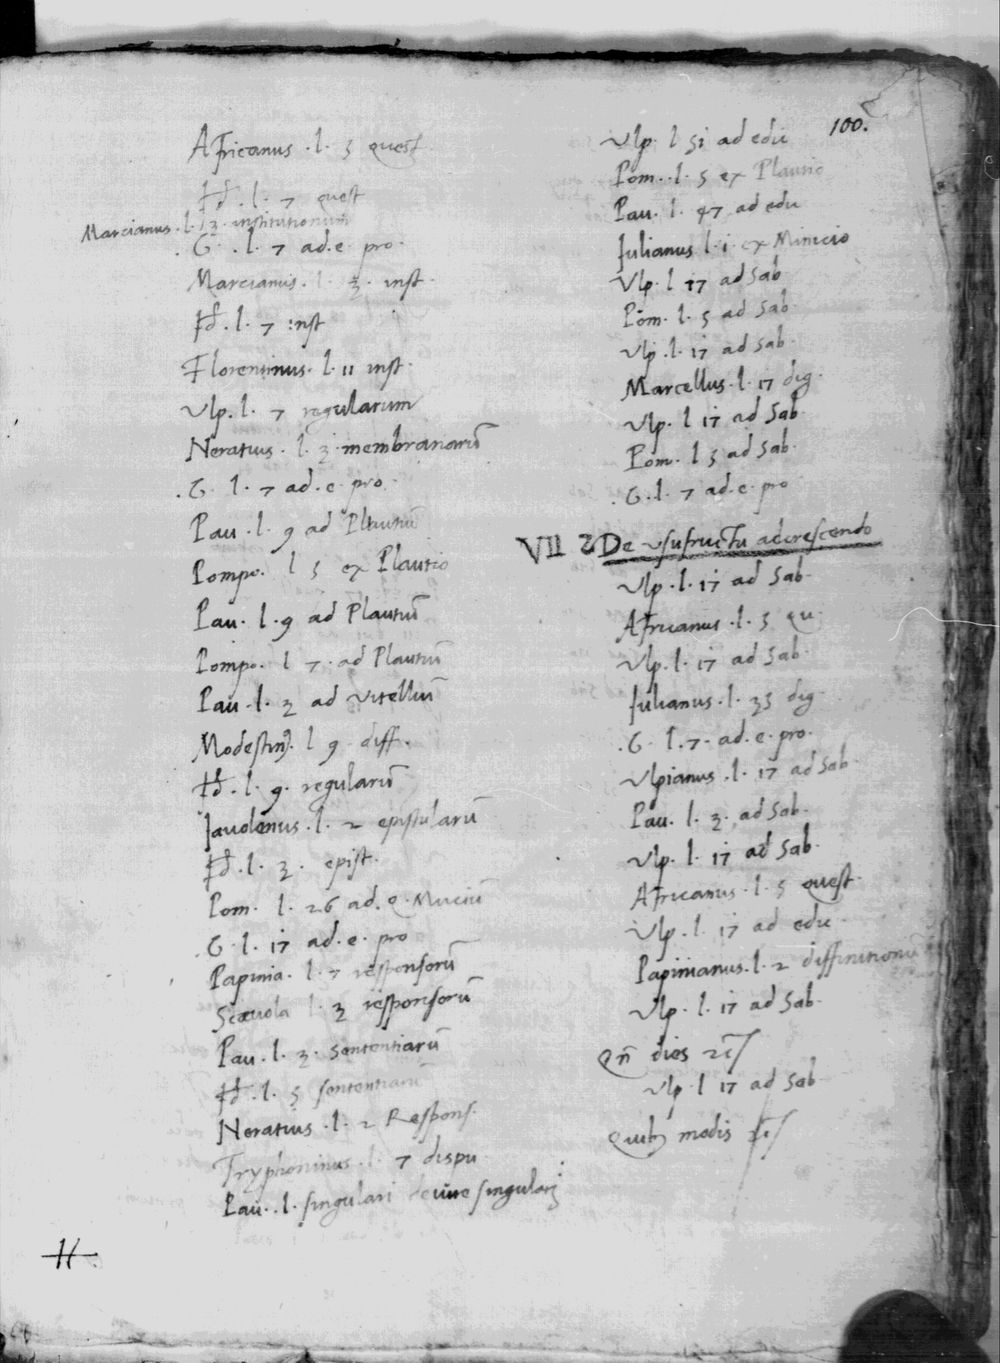 100.
Africanus . l . 5 quest
Id . l . 7 quest
Marcianus . l . 13 . institutionum
. G . l . 7 ad . e . pro .
Marcianus . l . 3 . inst .
Id . l . 7 inst
Florentinus . l . 11 inst .
Vlp . l . 7 regularum
Neratius . l . 3 . membranarū
. G . l . 7 ad . e . pro .
Pau . l . 9 ad Plautiū
Pompo . l 5 ex Plautio
Pau . l . 9 ad Plautiū
Pompo . l 7 . ad Plautiū
Pau . l . 3 ad vitelliū
Modestin9 . l 9 . diff .
Id . l . 9 . regularū
Iavolenus . l . 2 epistularū
Id . l . 3 . epist .
Pom . l . 26 ad . Q . Muciū
. G . l . 17 ad . e . pro
Papinia . l . 7 responsorū
Scævola l . 3 responsorū
Pau . l . 3 . sententiarū
Id . l . 5 sententiarū
Neratius . l . 2 Respons .
Tryphoninus . l . 7 dispu
Pau . l . singulari de iure singulari
H
Vlp . l 51 ad edu
Pom . l . 5 ex Plautio
Pau . l . 47 ad edu
Iulianus l . 1 . ex Minicio
Vlp . l 17 ad Sab .
Pom . l . 5 ad Sab .
Vlp . l . 17 ad Sab .
Marcellus . l . 17 dig .
Vlp . l 17 ad Sab .
Pom . l 5 ad Sab .
. G . l . 7 ad . e . pro
VII 2 De vsufructu adcrescendo
Vlp . l . 17 ad Sab .
Africanus . l . 5 qu .
Vlp . l . 17 ad Sab .
Iulianus . l . 35 dig
. G . l . 7 . ad . e . pro .
Vlpianus . l . 17 ad Sab .
Pau . l . 3 . ad Sab .
Vlp . l . 17 ad Sab .
Africanus . l . 5 quest .
Vlp . l . 17 ad edu .
Papinianus . l . 2 diffinitionū
Vlp . l . 17 ad Sab .
Qn̄ dies
Vlp . l 17 ad Sab
modis